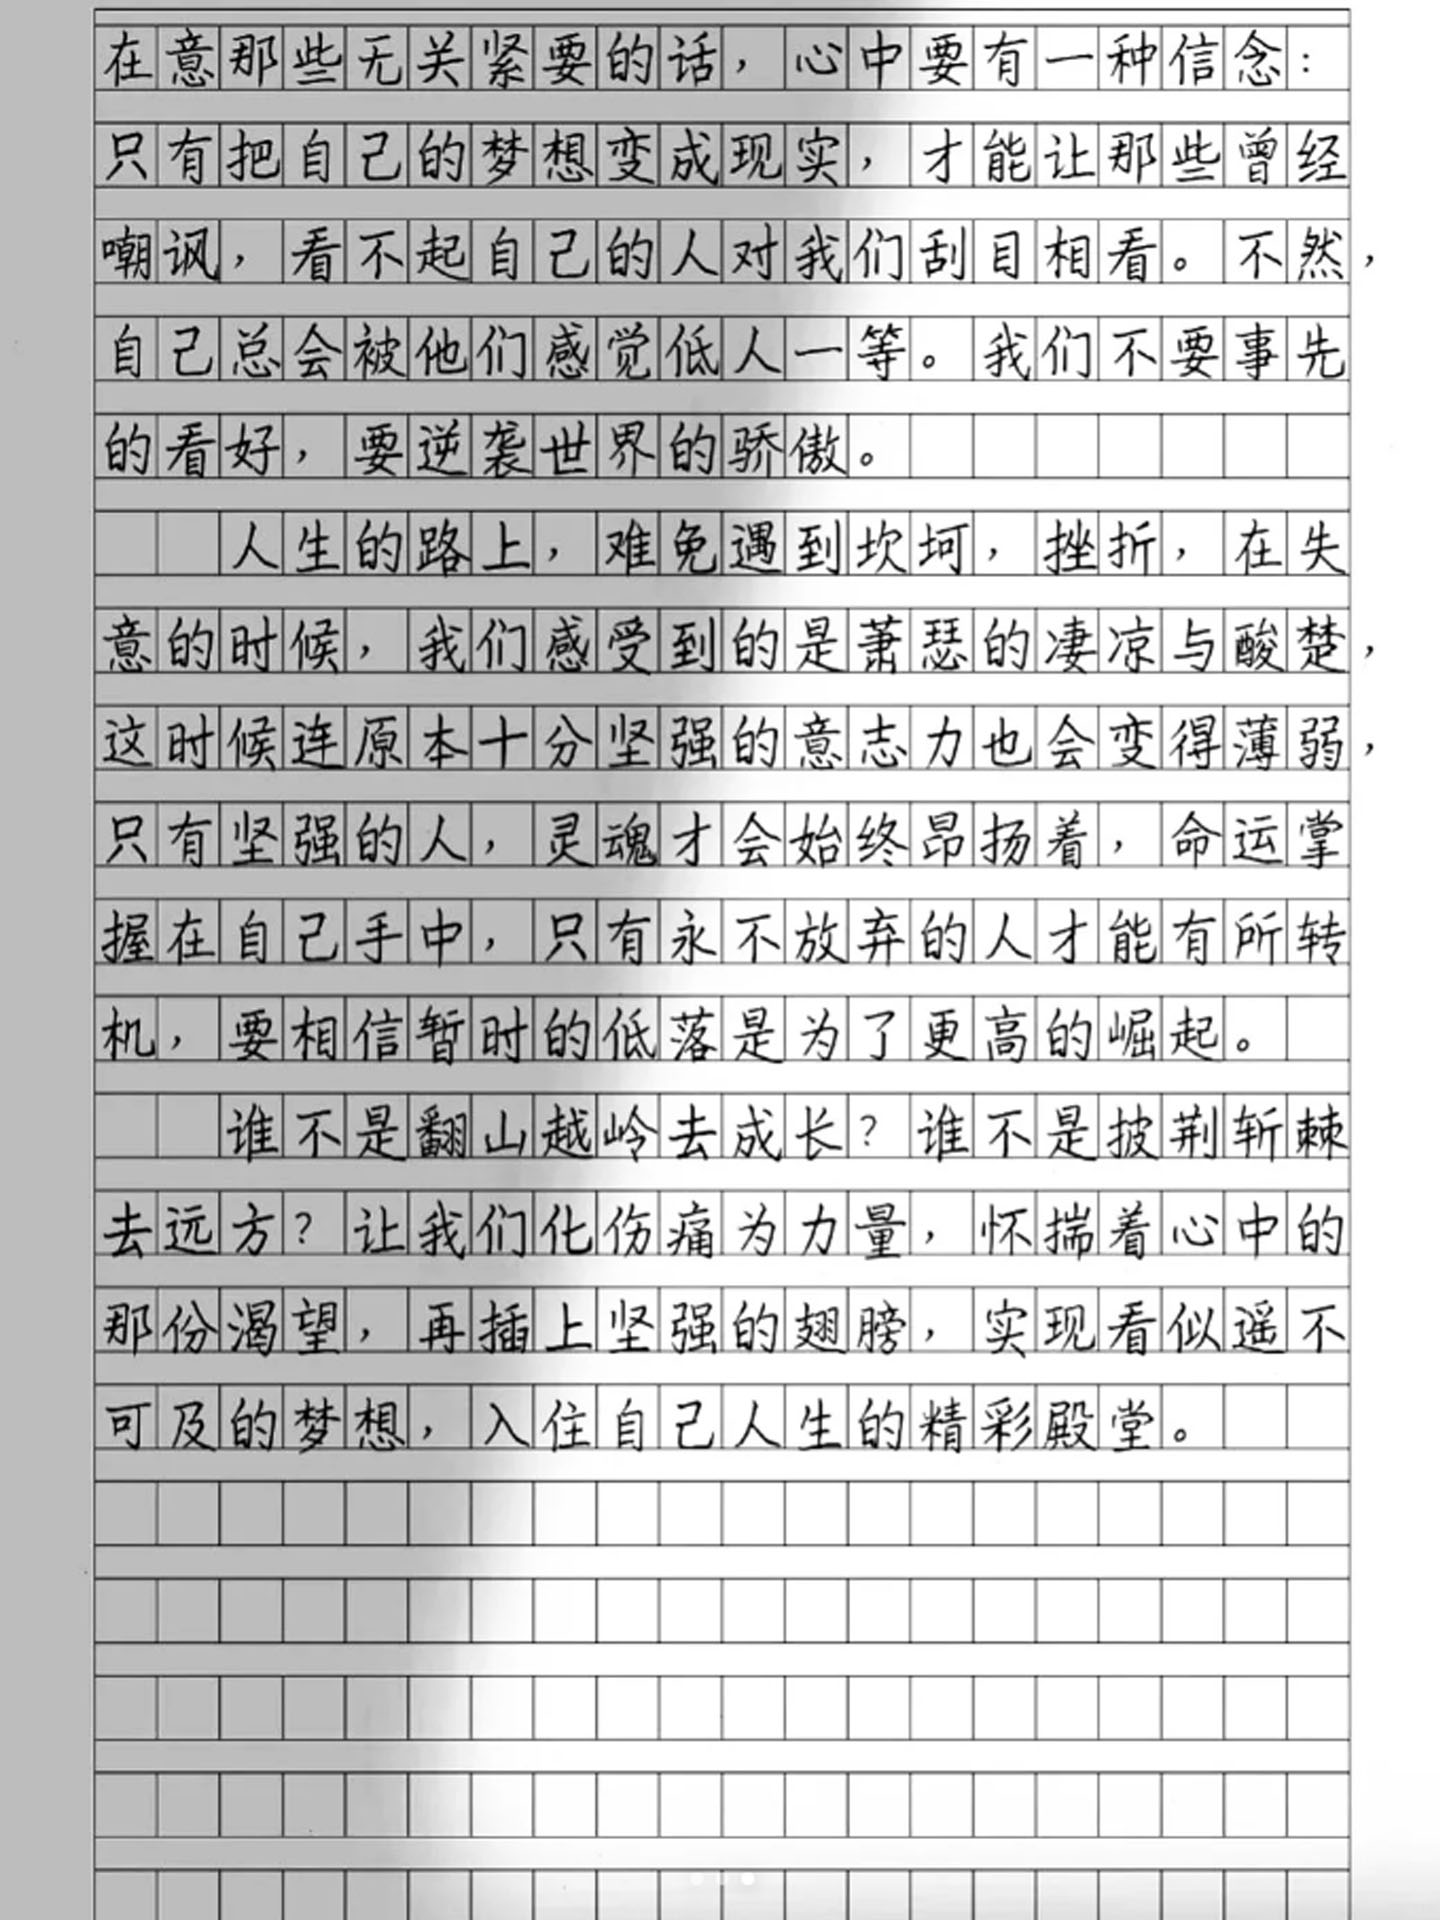 在意那些无关紧要的话，心中要有一种信念：
只有把自己的梦想变成现实，才能让那些曾经
嘲讽，看不起自己的人对我们刮目相看。不然，
自己总会被他们感觉低人一等。我们不要事先
的看好，要逆袭世界的骄傲。
人生的路上，难免遇到坎坷，挫折，在失
意的时候，我们感受到的是萧瑟的凄凉与酸楚，
这时候连原本十分坚强的意志力也会变得薄弱，
只有坚强的人，灵魂才会始终昂扬着，命运掌
握在自己手中，只有永不放弃的人才能有所转
机，要相信暂时的低落是为了更高的崛起。
谁不是翻山越岭去成长？谁不是披荆斩棘
去远方？让我们化伤痛为力量，怀揣着心中的
那份渴望，再插上坚强的翅膀，实现看似遥不
可及的梦想，入住自己人生的精彩殿堂。